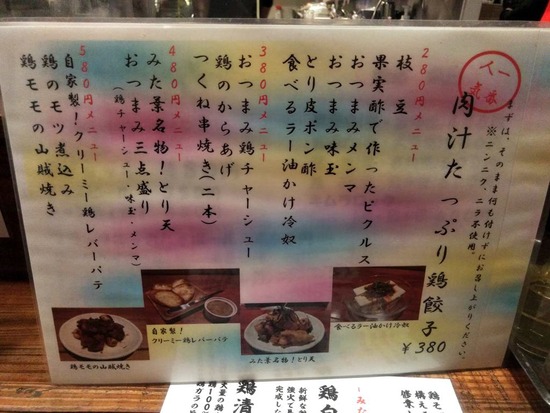 一番人気
肉汁たっぷり鶏餃子
¥380
まずは、そのまま何も付けずにお召し上がりください。
※ニンニク、ニラ不使用。
280円メニュー
枝豆
果実酢で作ったピクルス
おつまみメンマ
おつまみ味玉
とり皮ポン酢
食べるラー油かけ冷奴
380円メニュー
おつまみ鶏チャーシュー
鶏のからあげ
つくね串焼き(二本)
480円メニュー
みた葉名物!とり天
おつまみ三点盛り
(鶏チャーシュー・味玉・メンマ)
580円メニュー
自家製!クリーミー鶏レバーパテ
鶏のモツ煮込み
鶏モモの山賊焼き
食べるラー油かけ冷奴
みた葉名物!とり天
自家製!
クリーミー鶏レバーパテ
鶏モモの山賊焼き
鶏そ
構え
鶏白
新鮮な
強火で
完成し
鶏清
大量の鶏
鶏100
鶏ガラの